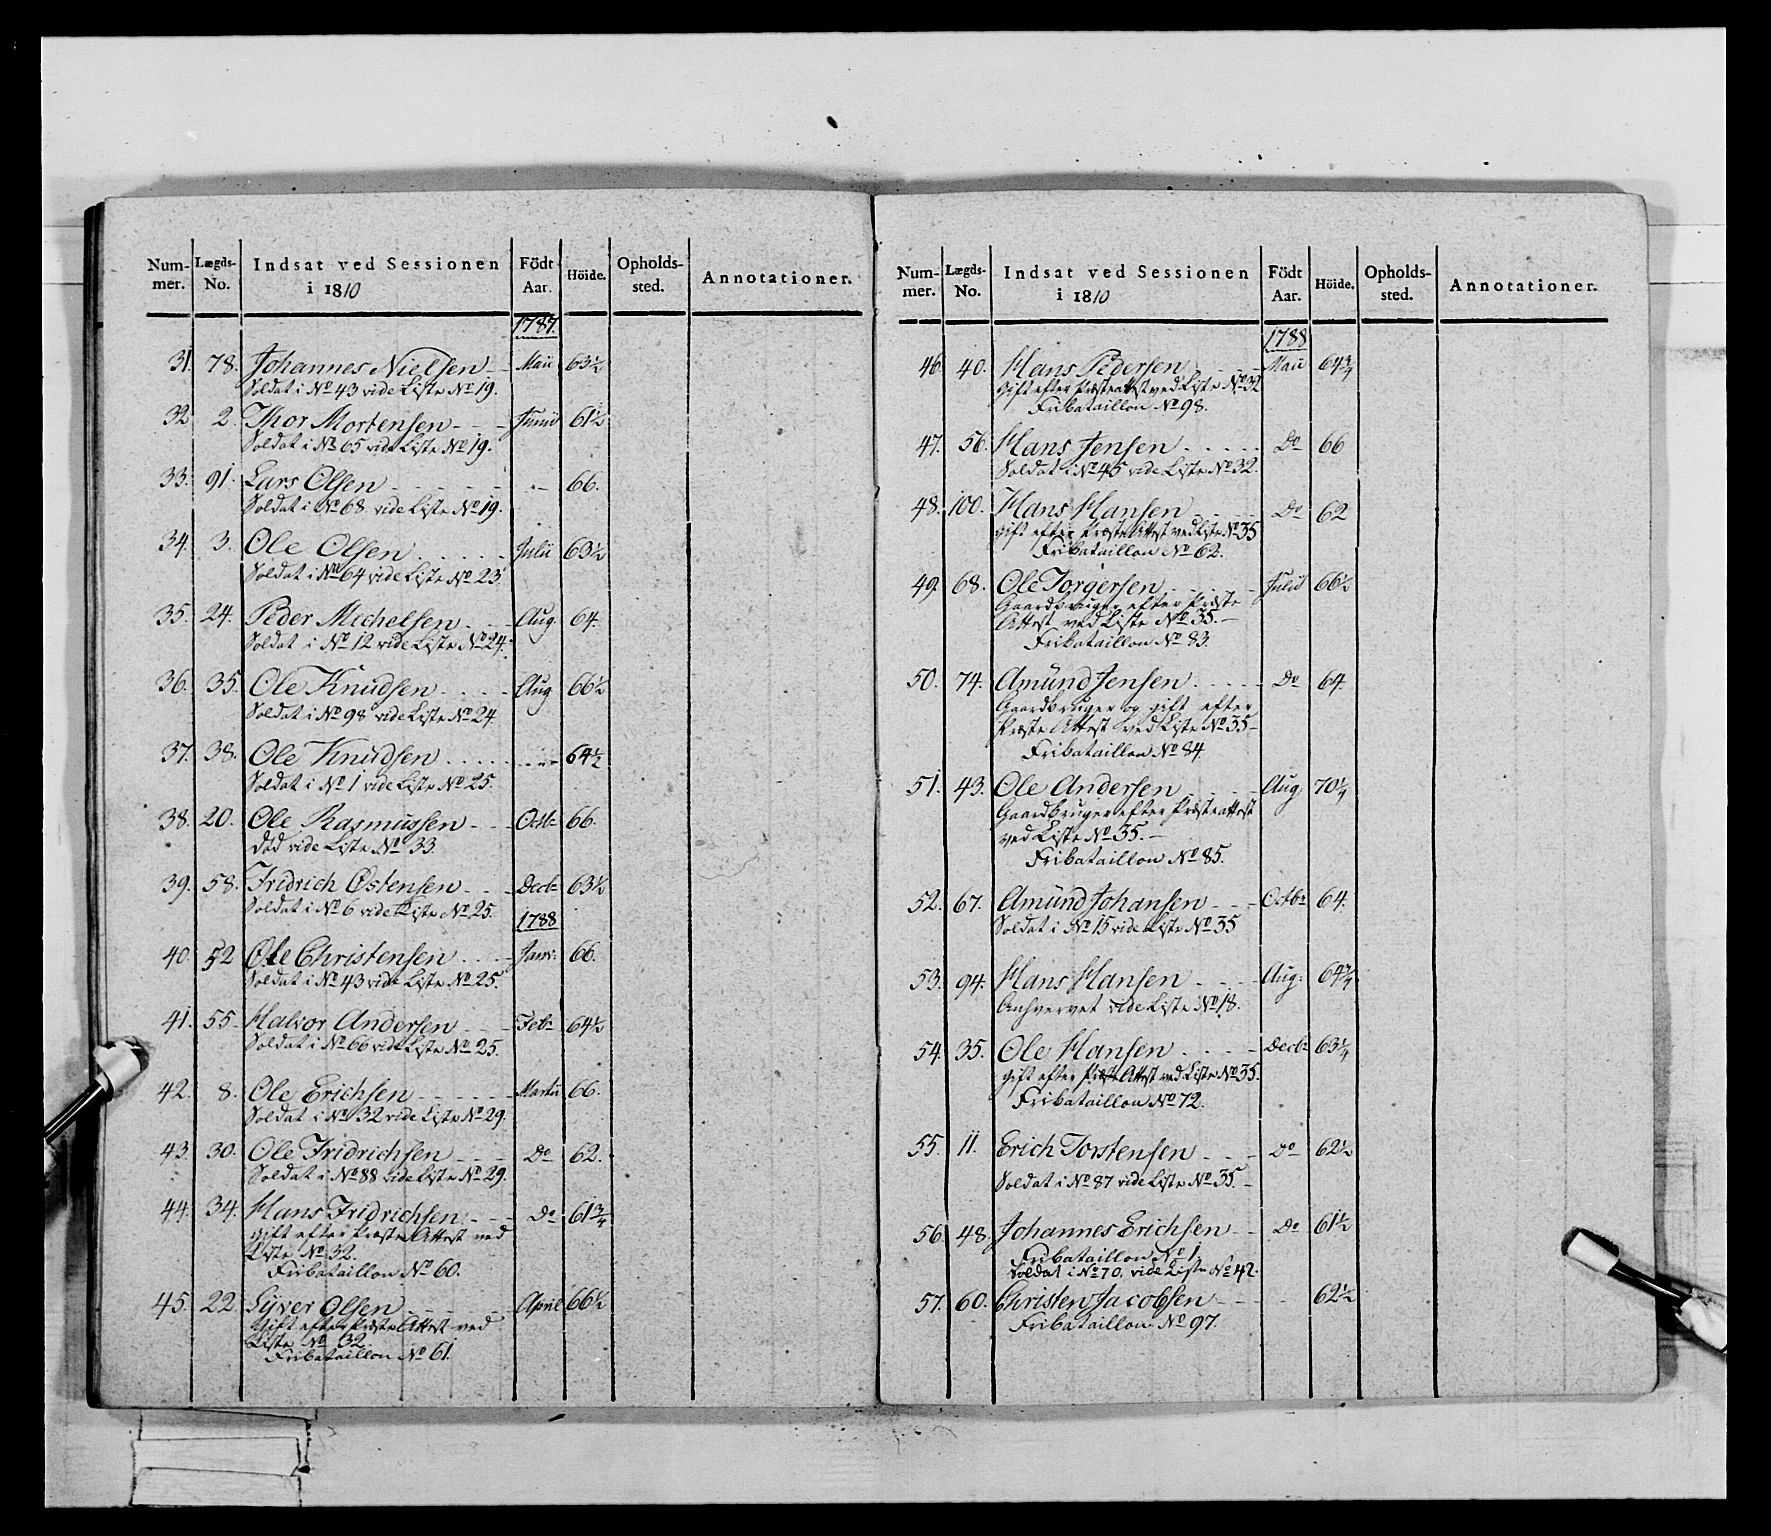 Num- Lægds- Indsat ved Sessionen Födt Höide. Opholds- Annotationer.
mer. No. i 1810 Aar. sted.
1787.
31. 78. Johannes Nielsen - - Maii 63½
Soldat i No 43 vide Liste No 19.
32 2. Thor Mortensen - - - Junii 61½
Soldat i No 65 vide Liste No 19.
33. 91. Lars Olsen - - - - - - „- 66.
Soldat i No 68 vide Liste No 19.
34. 3. Ole Olsen . . . . . Julii 63½
Soldat i No 64 vide Liste No 23
35. 24. Peder Michelsen . - - Aug. 64.
Soldat i No 12 vide Liste No 24.
36. 35. Ole Knudsen . . . . Aug 66½
Soldat i No 98 vide Liste No 24.
37. 38. Ole Knudsen . . . . . . „- 64½
Soldat i No 1 vide Liste No 25.
38. 20. Ole Rasmussen - - - Octbr 66.
död vide Liste No 33.
39. 58. Fridrich Östensen - . - Decbr 63½
Soldat i No 6 vide Liste No 25.
1788
40. 52 Ole Christensen . . . Janr: 66.
Soldat i No 43 vide Liste No 25.
41. 55. Halvor Andersen - - - Febr 64½
Soldat i No 66 vide Liste No 25.
42. 8. Ole Erichsen - - - - - Martii 66.
Soldat i No 32 vide Liste No 29.
43. 30. Ole Fridrichsen - - - Do 62.
Soldat i No 88 vide Liste No 29.
44. 34. Hans Fridrichsen - - - Do 61¾
gift efter Præste Attest ved
Liste No 32.
Fribataillon No 60.
45. 22. Syver Olsen - - - - - April 66½
Gift efter Præste Attest ved
Liste No 32
Fribataillon No 61.
Num- Lægds- Indsat ved Sessionen Födt Höide. Opholds- Annotationer.
mer. No. i 1810 Aar. sted.
1788
46. 40. Hans Pedersen . . . . Maii 64¾
Gift efter Præsteattest ved Liste No 32
Fribataillon No 98.
47. 56. Hans Jensen . . . . . Do 66
Soldat i No 45 vide Liste No 32.
48. 100. Hans Hansen . . . . Do 62
gift efter Præste Attest ved Liste No 35
Fribataillon No 62.
49. 68. Ole Torgersen . . . . Julii 66½
Gaardbruger efter Præste
Attest ved Liste No 35. -
Fribataillon No 83.
50. 74. Amünd Jensen . . . . Do 64.
Gaardbruger og gift efter
Præste Attest ved Liste No 35 -
Fribataillon No 84.
51. 43. Ole Andersen . . . . Aug. 70¼
Gaardbruger efter Præsteattest
ved Liste No 35. -
Fribataillon No 85.
52. 67. Amünd Johansen - - - Octbr 64.
Soldat i No 15 vide Liste No 35
53. 94. Hans Hansen . . . . Aug: 64¾
Anhvervet vide Liste No 18.
54. 35. Ole Hansen . . . . . Decbr 63¼
gift efter Præste Attest ved Liste No 35.
Fribataillon No 72.
55. 11. Erich Torstensen . . . Do 62½
Soldat i No 87 vide Liste No 35. -
56. 48. Johannes Erichsen - - Do 61½
Fribataillon No 1.
Soldat i No 70. vide Liste No 42.
57. 60. Christen Jacobsen - - - 62½
Fribataillon No 97.